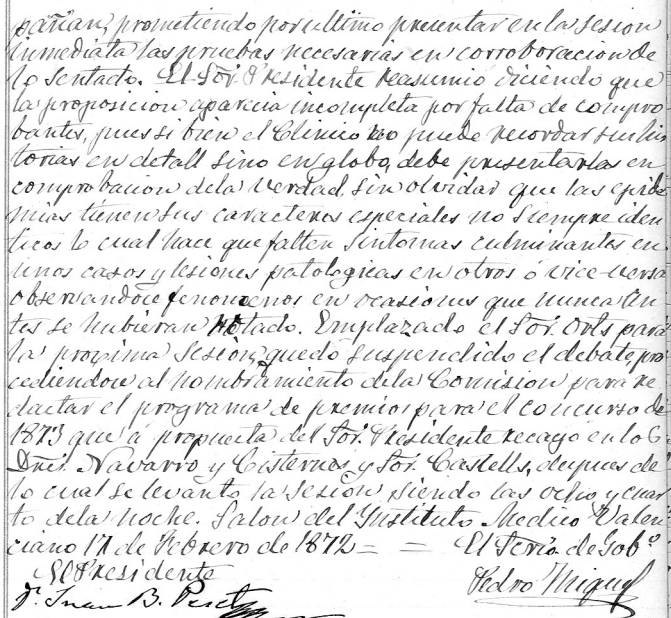 pañan, prometiendo por ultimo presentar en la sesion
inmediata las pruebas necesarias en corroboracion de
lo sentado. El Sor. Presidente reasumió diciendo que
la proposicion aparecia incompleta por falta de compro
bantes, pues si bien el Clinico no puede recordar sus his
torias en detall sino en globo, debe presentarlas en
comprobacion de la verdad sin olvidar que las epide
mias tienen sus caracteres especiales no siempre iden
ticos lo cual hace que falten sintomas culminantes en
unos casos y lesiones patologicas en otros ó vice-versa
observandose fenomenos en ocasiones que nunca an
tes se hubieran notado. Emplazado el Sor. Orts para
la proxima sesión, quedó suspendido el debate, pro
cediendose al nombramiento de la Comision para re
dactar el programa de premios para el concurso de
1873 que á propuesta del Sor. Presidente recayó en los
Dres. Navarro y Cisternas y Sor. Castells, depues de
lo cual se levantó la sesion, siendo las ocho y cuar
to de la noche. Salon del Instituto Medico Valen
ciano 17 de Febrero de 1872 = = El Serio. de Gobo.
El Presidente
Pedro Miguel
Dr. Juan B. Peset